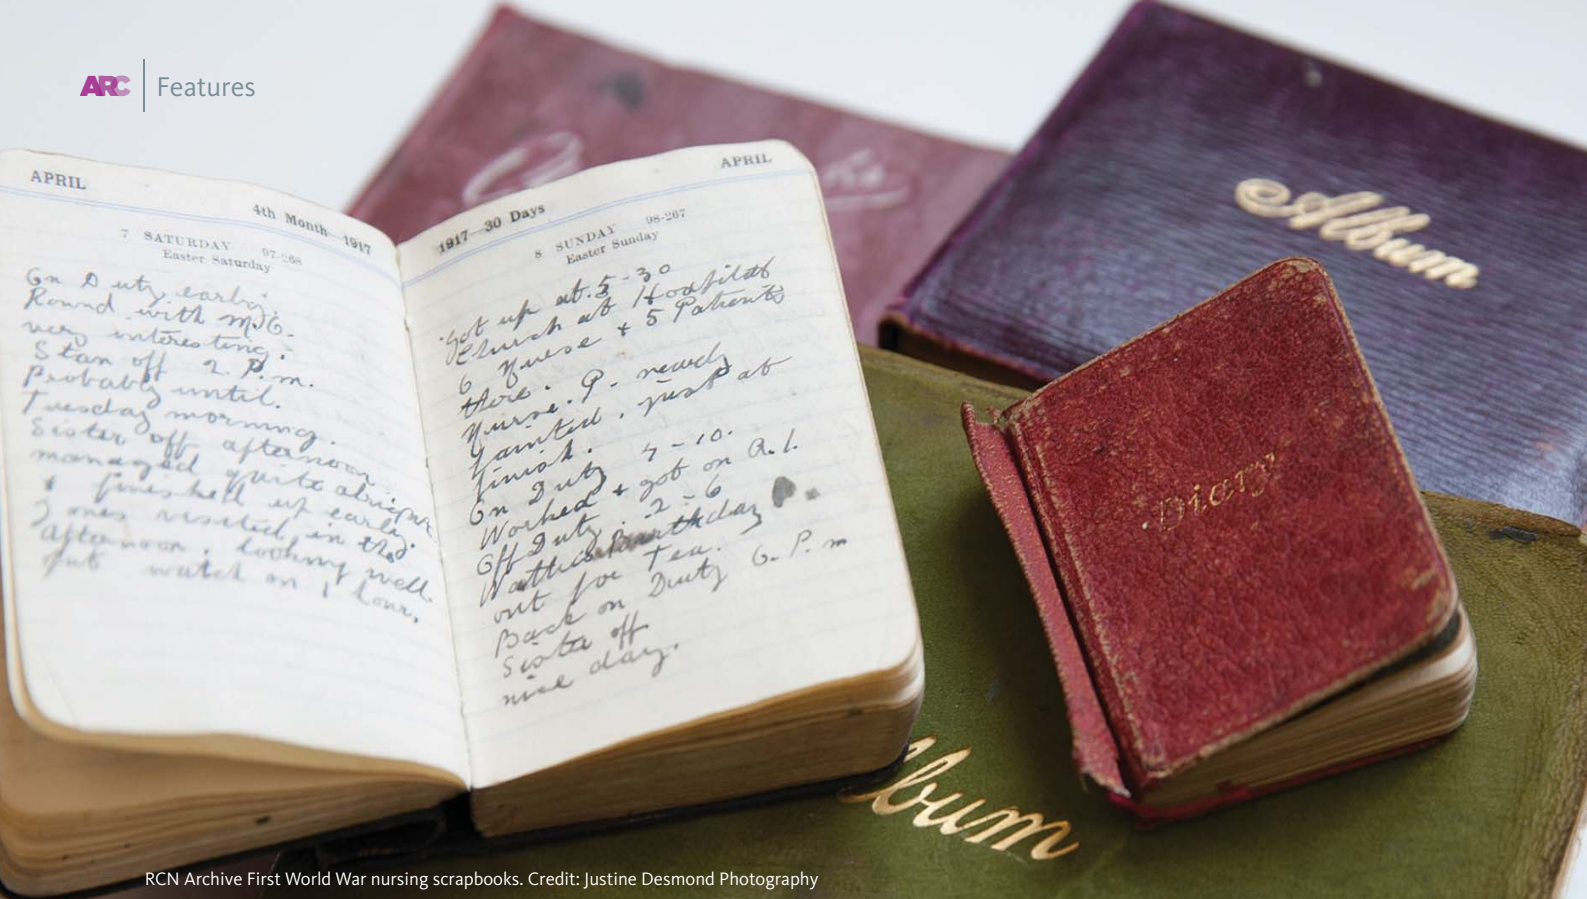 ARC | Features
APRIL
4th Month 1917
7 SATURDAY 97-268
Easter Saturday
On Duty early.
Round with M.O.
very interesting.
Stan off 2. P.m.
Probably until.
Tuesday morning.
Sister off afternoon
managed quite alright
& finished up early.
3 ones visited in the
afternoon. looking well.
put watch on 1 hour.
APRIL
1917 30 Days
8 SUNDAY 98-267
Easter Sunday
got up at. 5-30
Church at Hospital
6 Nurse + 5 Patients
there.
Nurse. P. nearly
fainted. just at
finish.
On Duty 7-10.
Worked & got on A.1.
Off Duty. 2-6
Birthday
out for Tea.
Back on Duty 6. P.m
Sister off
nice day.
Album
Diary
lbum
RCN Archive First World War nursing scrapbooks. Credit: Justine Desmond Photography